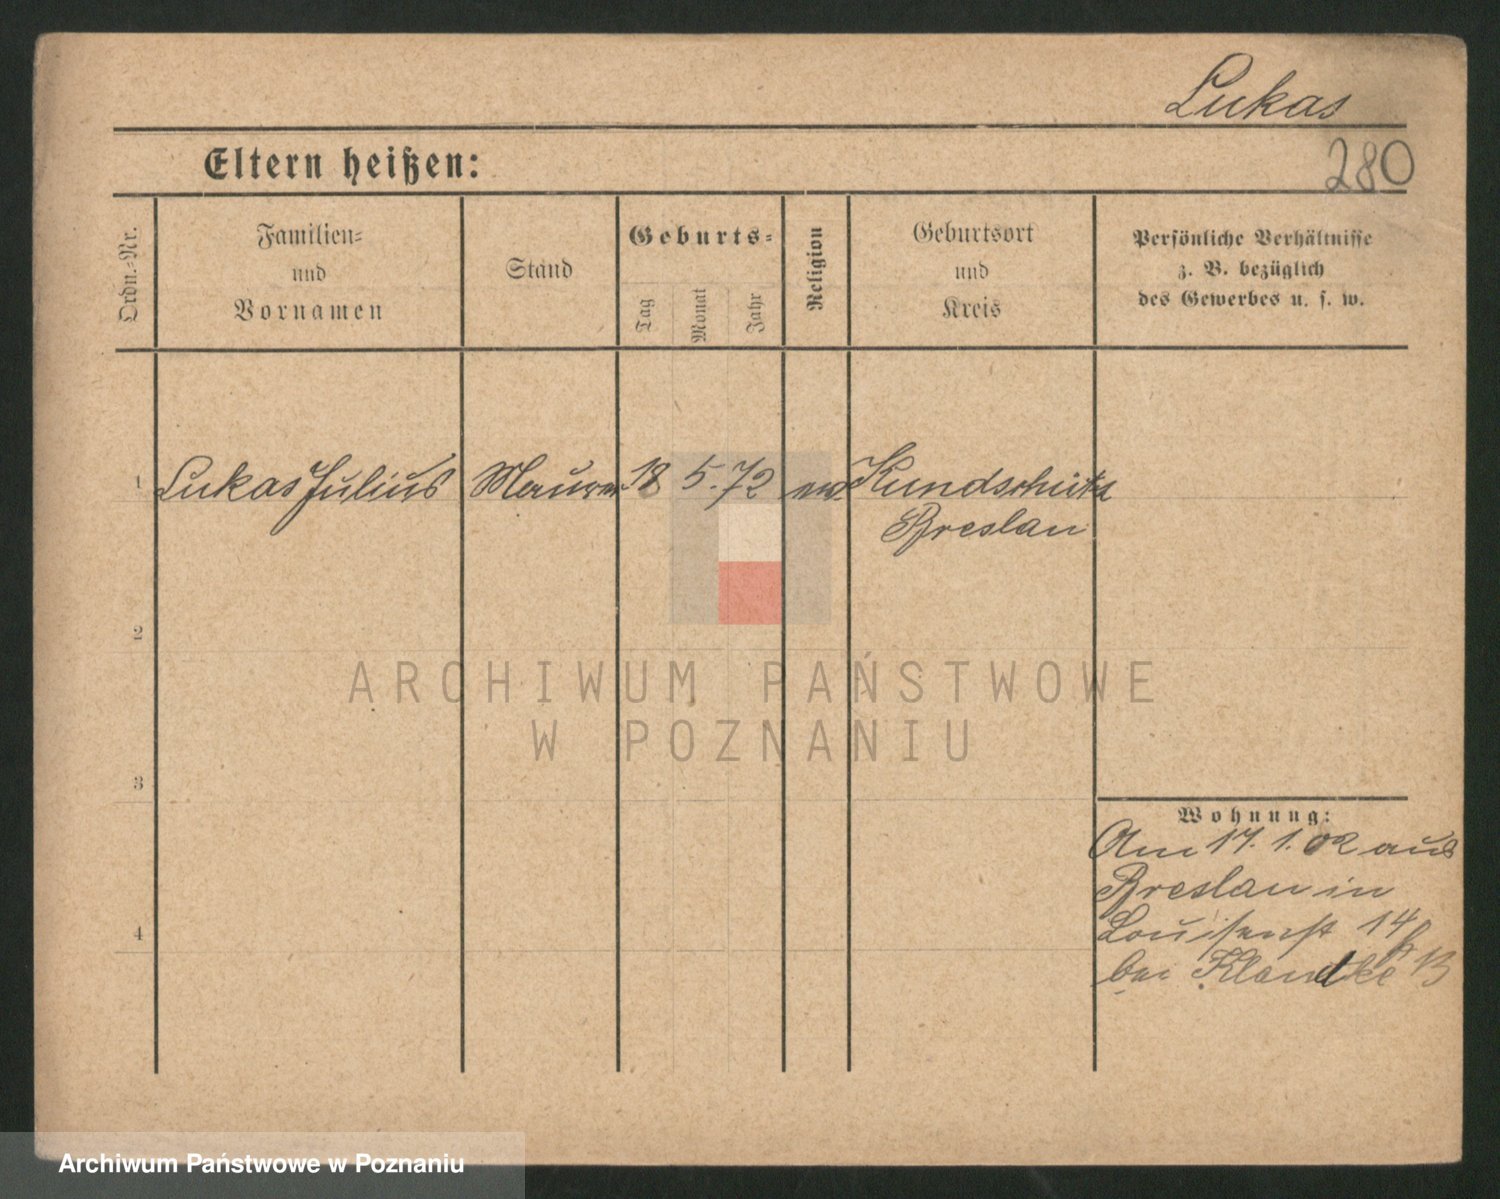 Lukas
Eltern heißen:
280
Ordn.-Nr.
Familien-
und
Vornamen
Stand
Geburts-
Tag
Monat
Jahr
Religion
Geburtsort
und
Kreis
Persönliche Verhältnisse
z. B. bezüglich
des Gewerbes u. s. w.
1 Lukas Julius Maurer 18 5. 72 ev. Kundschütz
Breslau
2
ARCHIWUM PAŃSTWOWE
W POZNANIU
3
Wohnung:
Am 17. 1. 02 aus
Breslau in
Louisenst 14
4
bei
Archiwum Państwowe w Poznaniu